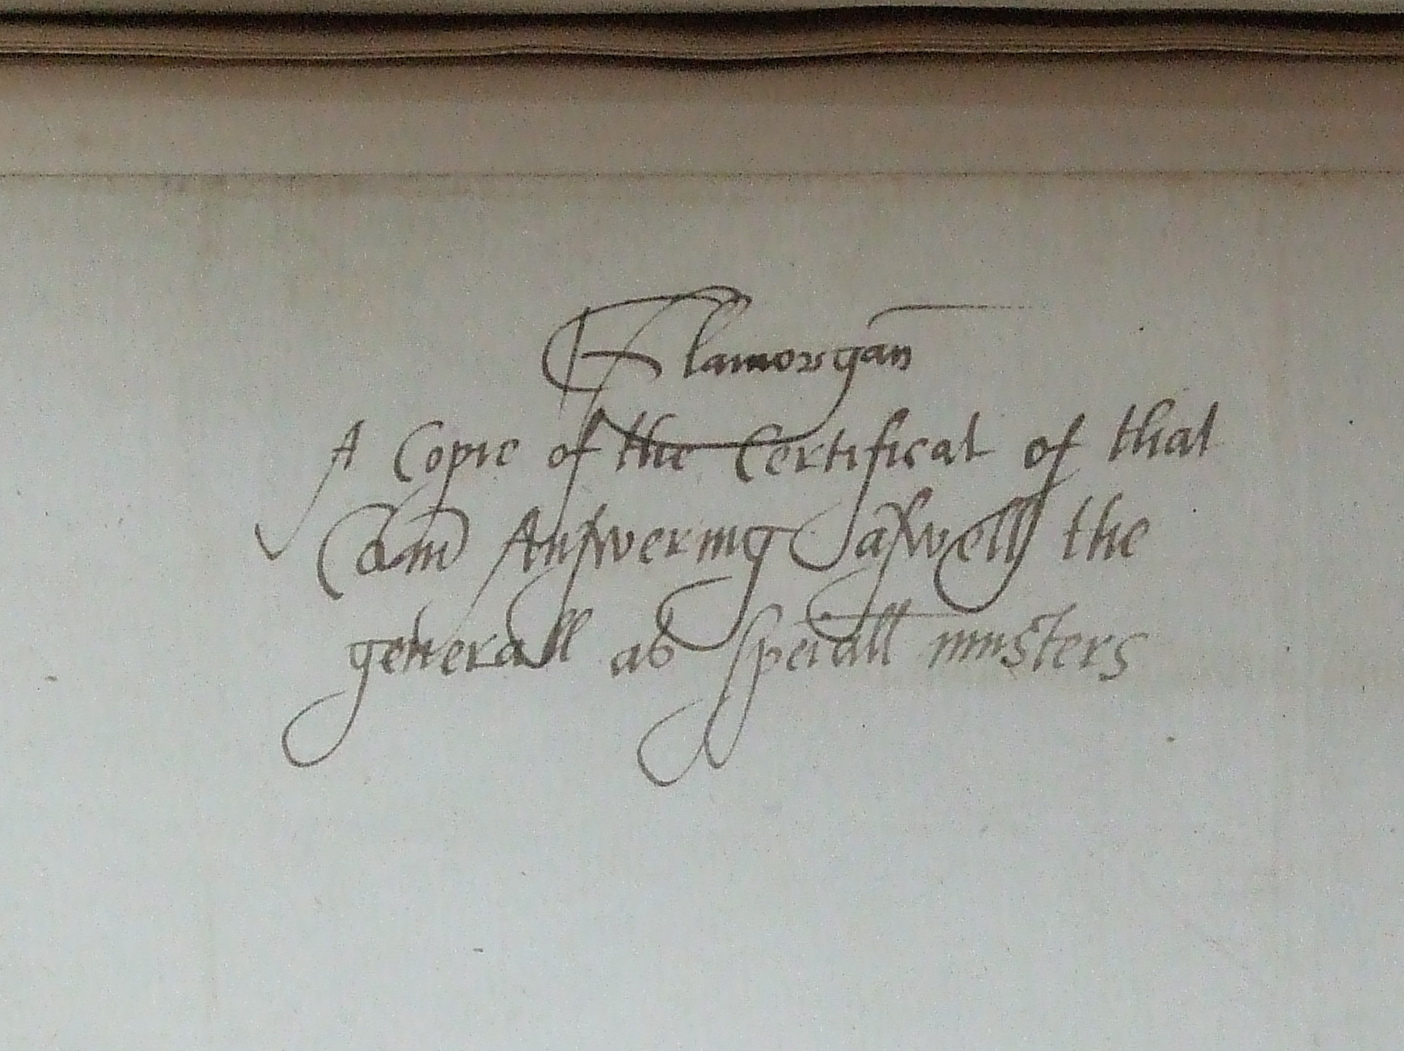 Glamorgan
A Copie of the Certificat of that
Answering aswell the
generall as speciall musters